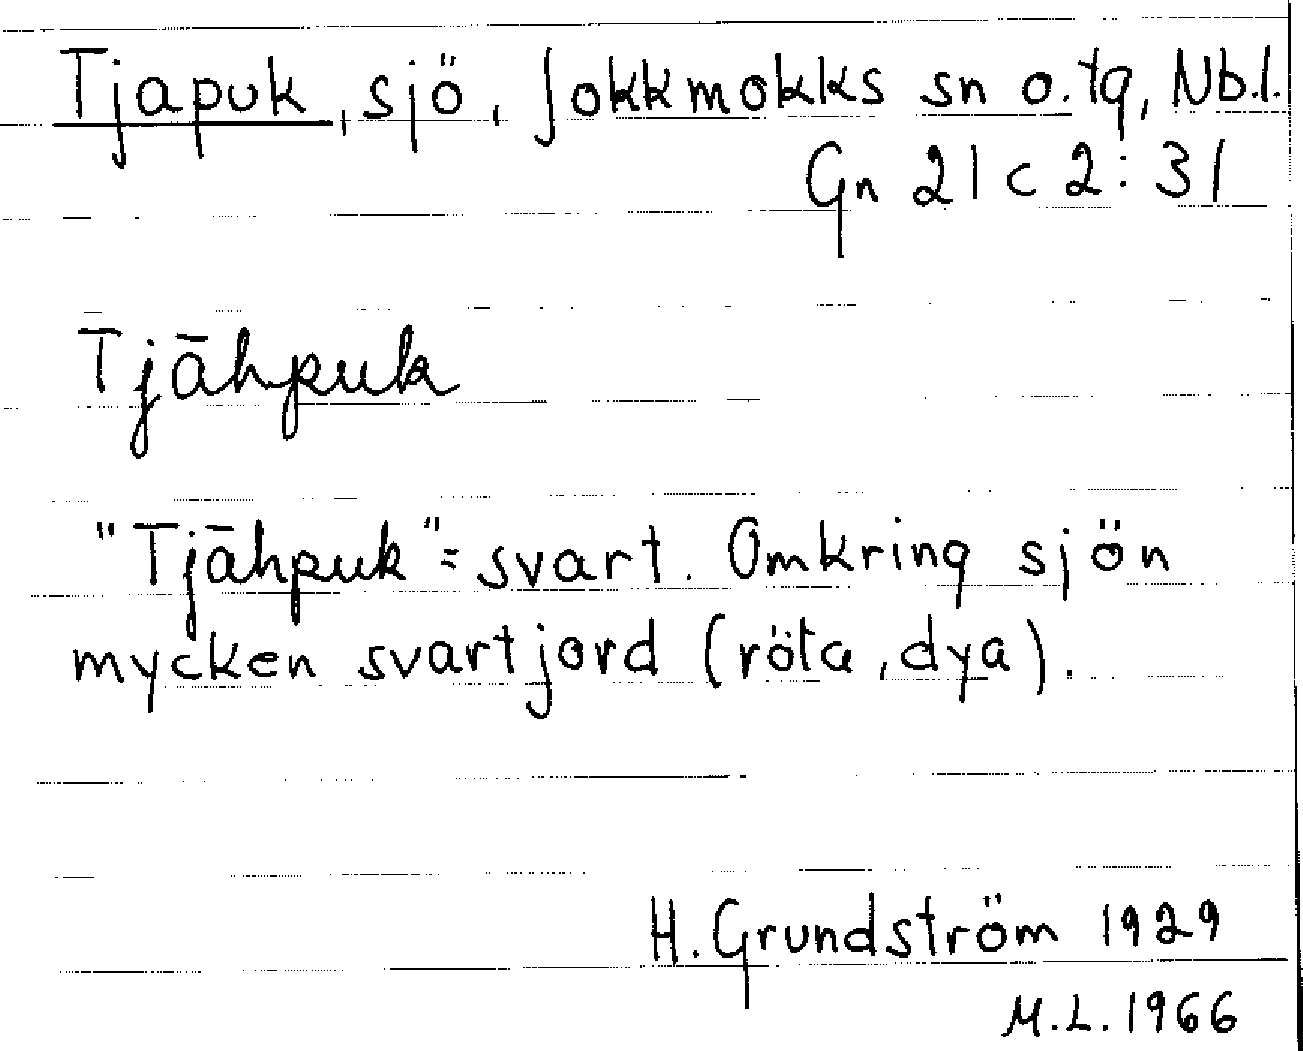 Tjapuk, sjö, Jokkmokks sn o. tg, Nb.l.
Gn 21 c 2:31
Tjāhpuk
"Tjāhpuk" = svart. Omkring sjön
mycken svartjord (röta, dya).
H. Grundström 1929
M.L. 1966